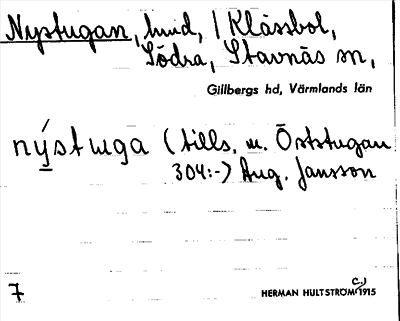 Nystugan, hmd, / Klässbol,
Södra, Stavnäs sn,
Gillbergs hd, Värmlands län
nýstuga (tills. m. Öststugan
304:-) Aug. Jansson
7
HERMAN HULTSTRÖM (c.) 1915